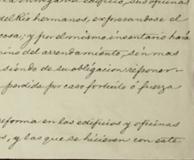 edificio, sus oficinas
del Rio hermanos, expresandose el
cosa; y por el mismo inventario hará
del arrendamiento, sin mas
siendo de su obligacion responer
perdida por caso fortuito ó fuerza
reforma en los edificios y oficinas
y las que se hicieren con este